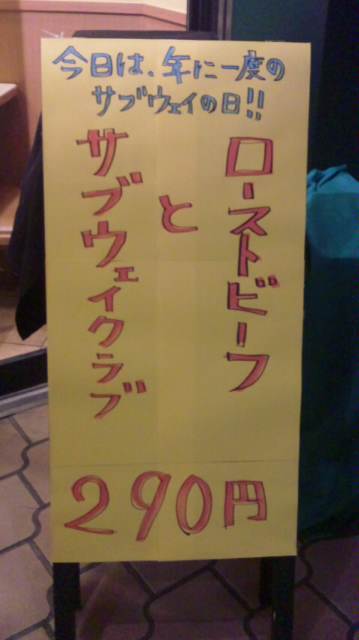 今日は、年に一度の
サブウェイの日!!
ローストビーフ
と
サブウェイクラブ
290円